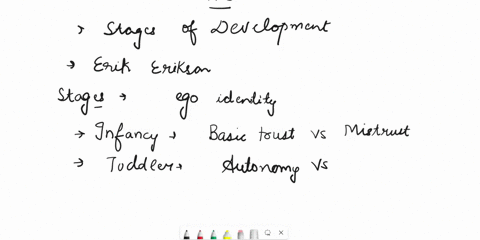 Stages of Development
Erik Erikson
Stages ego identity
Infancy Basic trust vs Mistrust
Toddler Autonomy vs